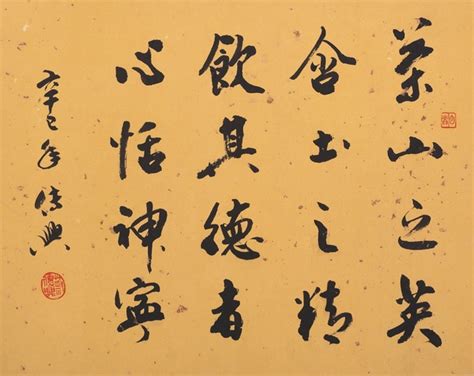 茶山之英
含土之精
飲其德者
心恬神寧
辛巳年